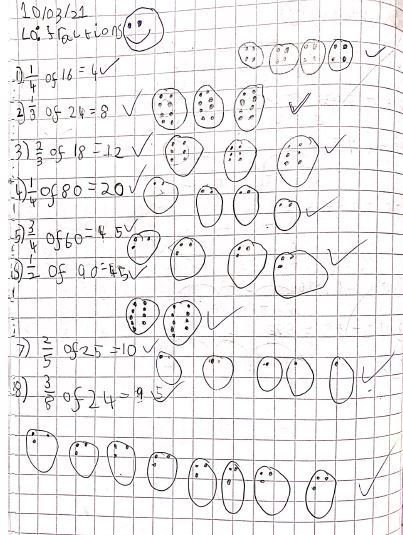 10/03/21
Lo: fractions
1) 1/4 of 16 = 4
2) 1/3 of 24 = 8
3) 2/3 of 18 = 12
4) 1/4 of 80 = 20
5) 3/4 of 60 = 45
6) 1/2 of 90 = 45
7) 2/5 of 25 = 10
8) 3/8 of 24 = 9